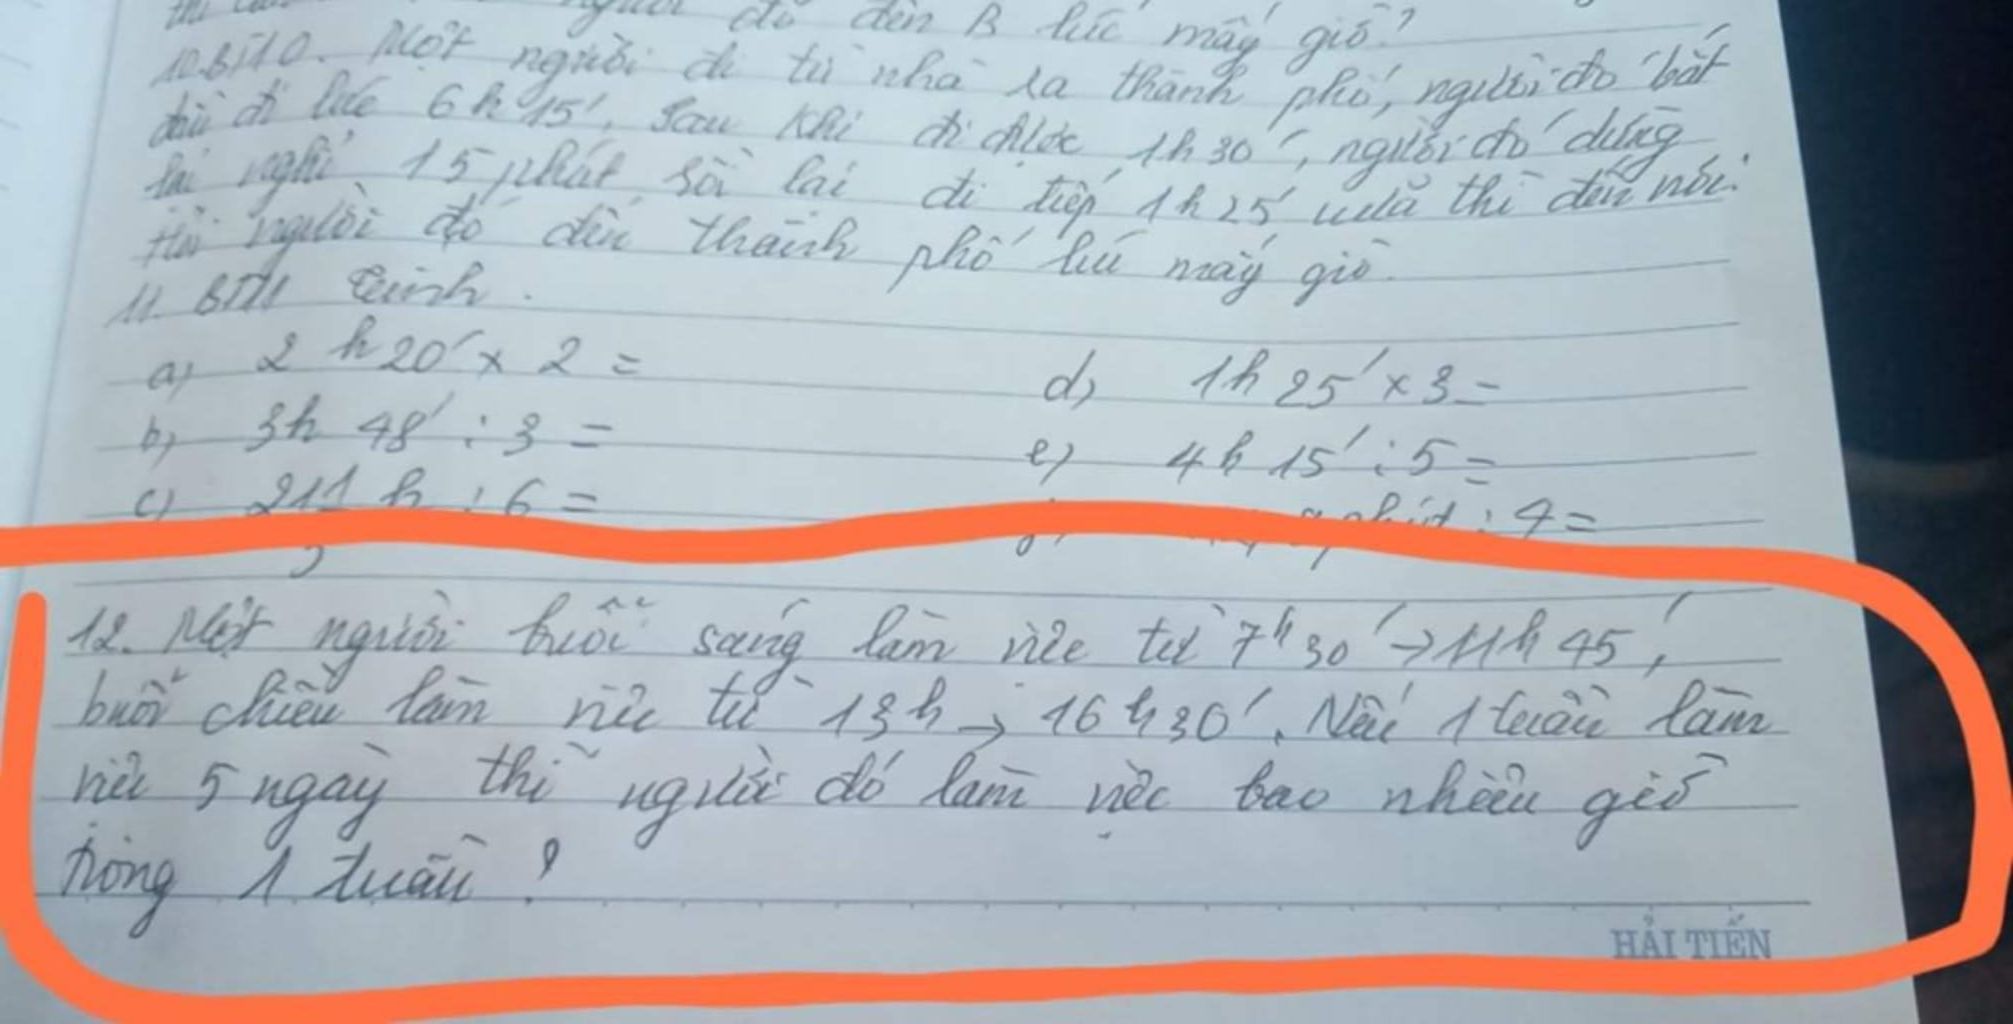 người đó đến B lúc mấy giờ?
10. BT10. Một người đi từ nhà ra thành phố, người đó bắt
đầu đi lúc 6h15', sau khi đi được 1h30', người đó dừng
lại nghỉ 15 phút rồi lại đi tiếp 1h25' nữa thì đến nơi.
Hỏi người đó đến thành phố lúc mấy giờ
11. BT11 Tính.
a) 2h20' x 2 =
d) 1h25' x 3 =
b) 3h 48' : 3 =
e) 4h 15' : 5 =
c) h : 6 =
phút : 4 =
12. Một người buổi sáng làm việc từ 7h30' → 11h45',
buổi chiều làm việc từ 13h → 16h30'. Nếu 1 tuần làm
việc 5 ngày thì người đó làm việc bao nhiêu giờ
trong 1 tuần?
HẢI TIẾN